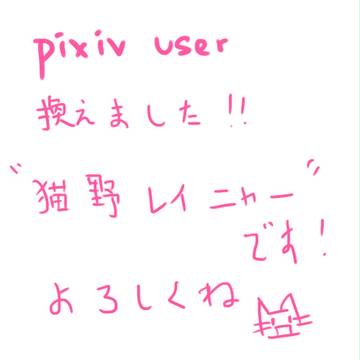 pixiv user
換えました!!
"猫野レイニャー"
です!
よろしくね